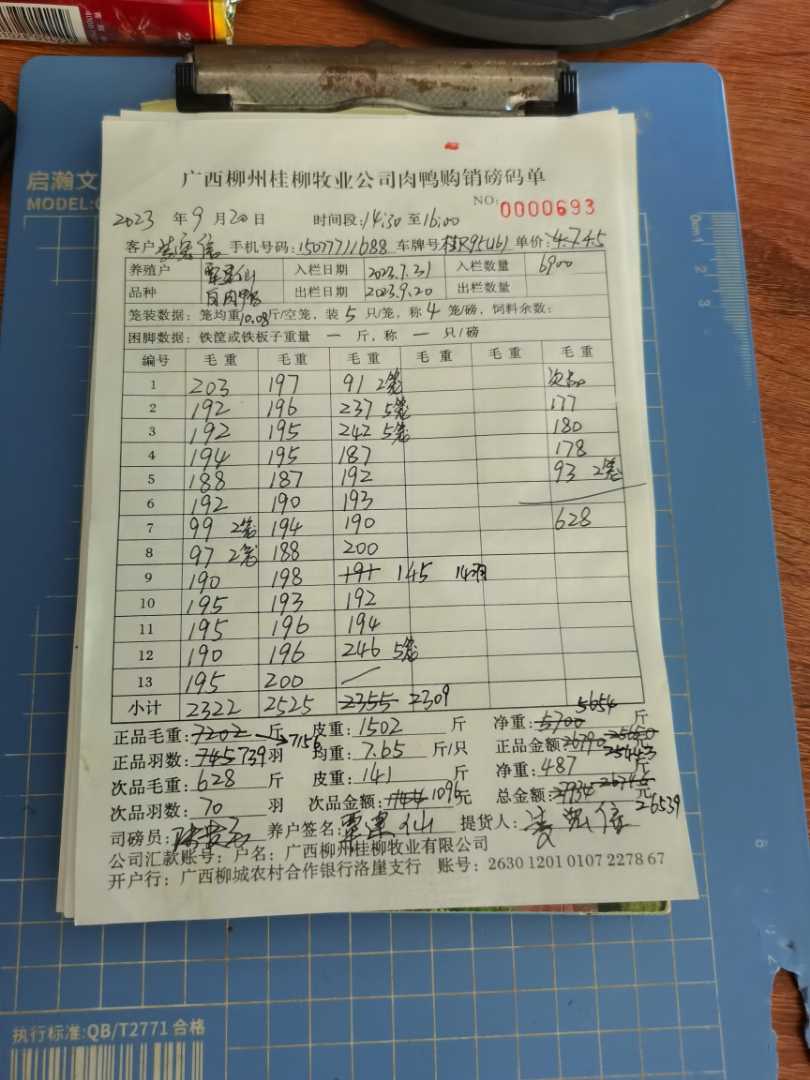 启瀚文
MODEL:
广西柳州桂柳牧业公司肉鸭购销磅码单
NO: 0000693
2023 年 9 月 20 日 时间段: 14:30 至 16:00
客户 手机号码: 15077711688 车牌号 单价: 4.7 4.5
养殖户 入栏日期 2023.7.31 入栏数量 6900
品种 出栏日期 2023.9.20 出栏数量
笼装数据: 笼均重 10.08 斤/空笼, 装 5 只/笼, 称 4 笼/磅, 饲料余数:
困脚数据: 铁筐或铁板子重量 一 斤, 称 一 只/磅
编号 毛重 毛重 毛重 毛重 毛重 毛重
1 203 197 91 2笼 次品
2 192 196 237 5笼 177
3 192 195 242 5笼 180
4 194 195 187 178
5 188 187 192 93 2笼
6 192 190 193
7 99 2笼 194 190 628
8 97 2笼 188 200
9 190 198 191 145 14羽
10 195 193 192
11 195 196 194
12 190 196 246 5笼
13 195 200
小计 2322 2525 2355 2309
正品毛重: 7202 7156 斤 皮重: 1502 斤 净重: 5700 5654 斤
正品羽数: 745 739 羽 均重: 7.65 斤/只 正品金额: 26790 25650 25443
次品毛重: 628 斤 皮重: 141 斤 净重: 487 斤
次品羽数: 70 羽 次品金额: 1096 元 总金额: 26539 元
司磅员: 养户签名: 提货人:
公司汇款账号: 户名: 广西柳州桂柳牧业有限公司
开户行: 广西柳城农村合作银行洛崖支行 账号: 2630 1201 0107 2278 67
执行标准:QB/T2771 合格